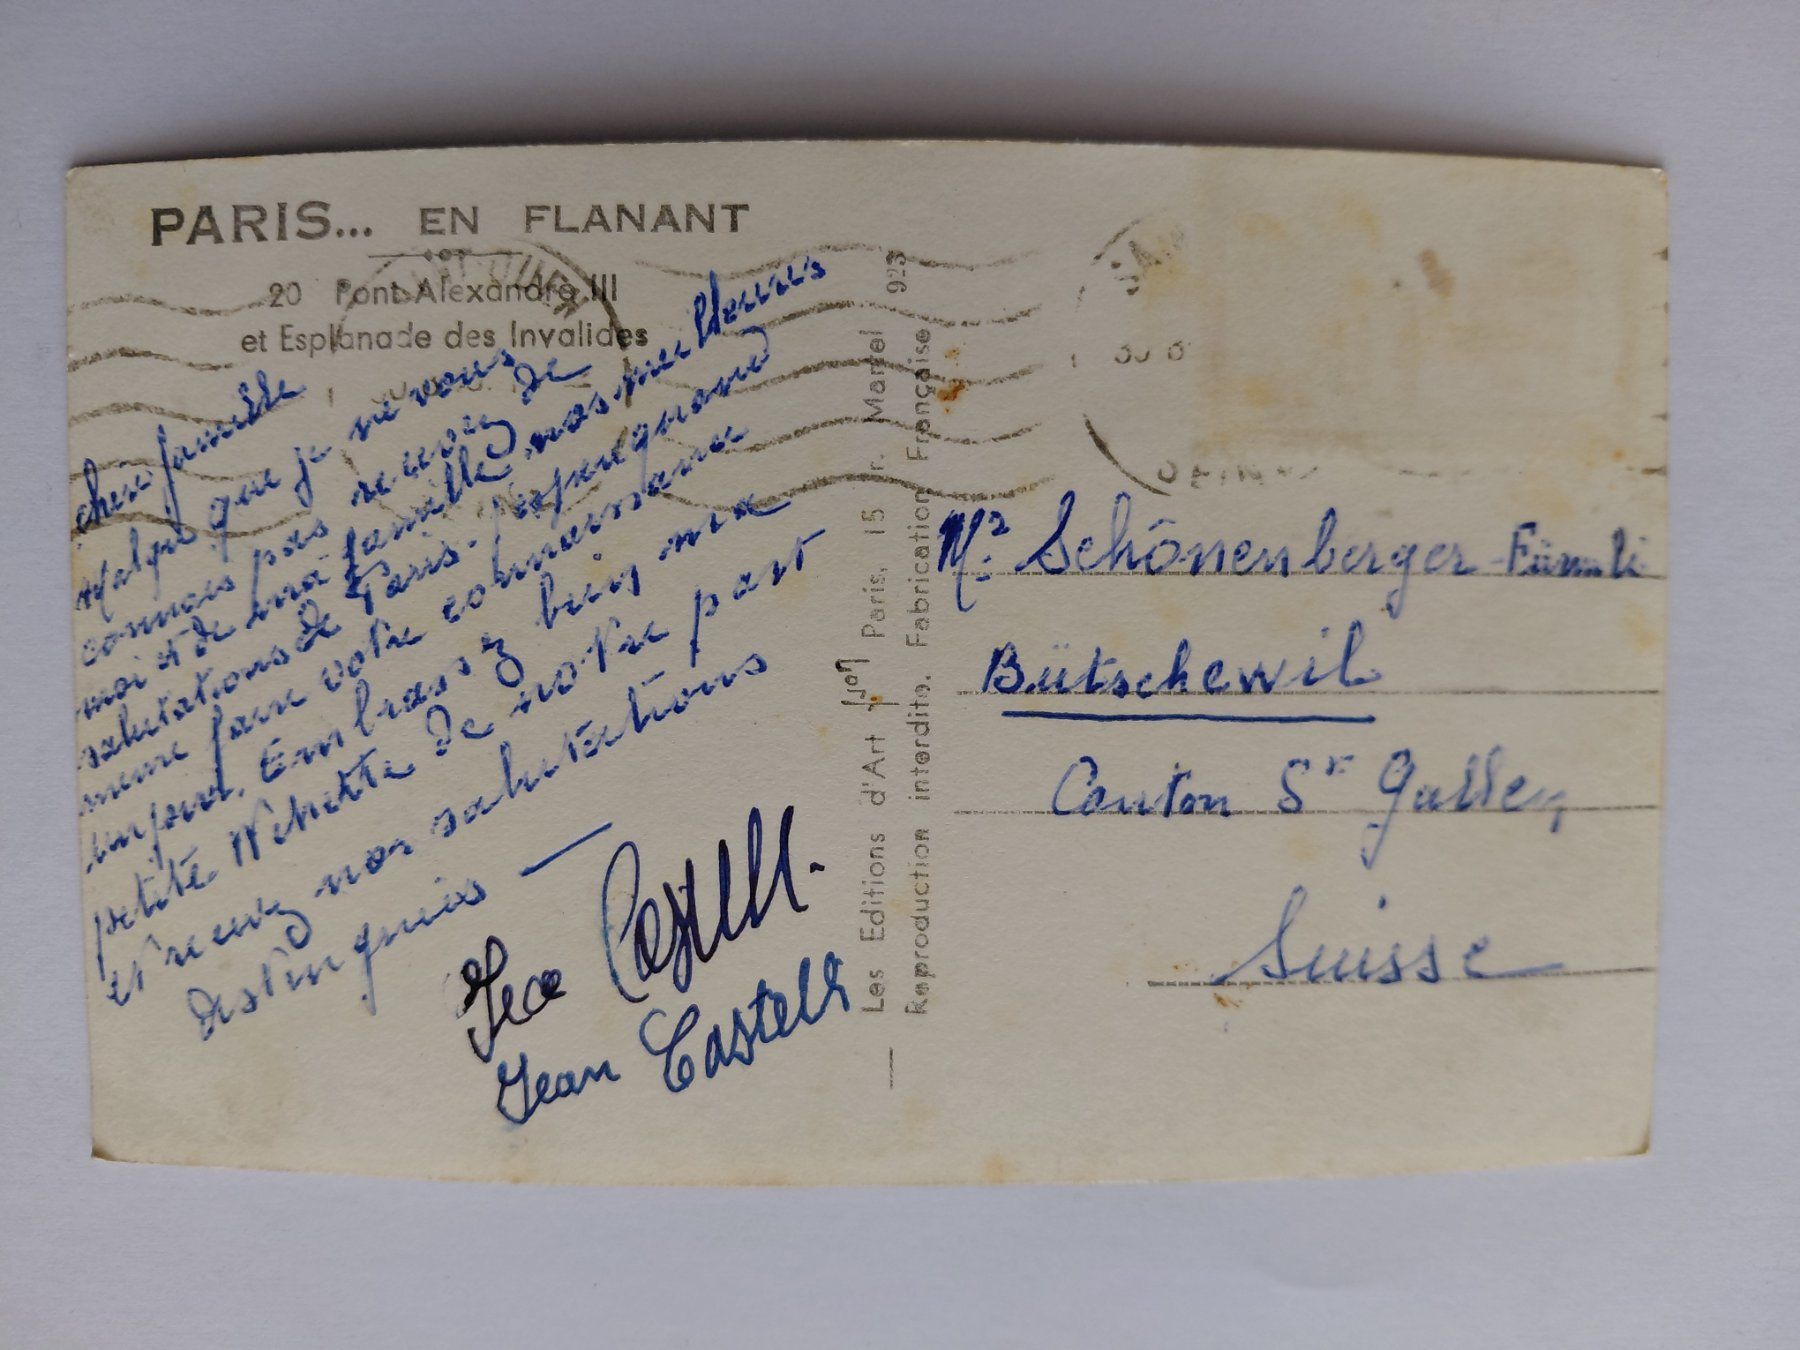 PARIS... EN FLANANT
20 Pont Alexandre III
et Esplanade des Invalides
cher famille
Malgré que je ne vous
connais pas recevez de
moi et de ma famille nos meilleures
salutations de Paris. J'espere quand
meme faire votre connaissance
un jour. Embrassez bien ma
petite Ninette de notre part
et recevez nos salutations
distingués —
Castelli
Jean Castelli
Les Editions d'Art Yvon Paris, 15 r. Martel 923
Reproduction interdite. Fabrication Française
Mr. Schönenberger
Bütschewil
Canton St Gallen
Suisse